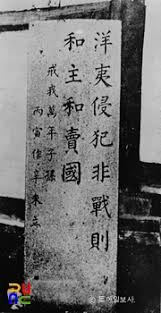 洋夷侵犯非戰則
和主和賣國
戒我萬年子孫
丙寅作辛未立
© 동아일보사.